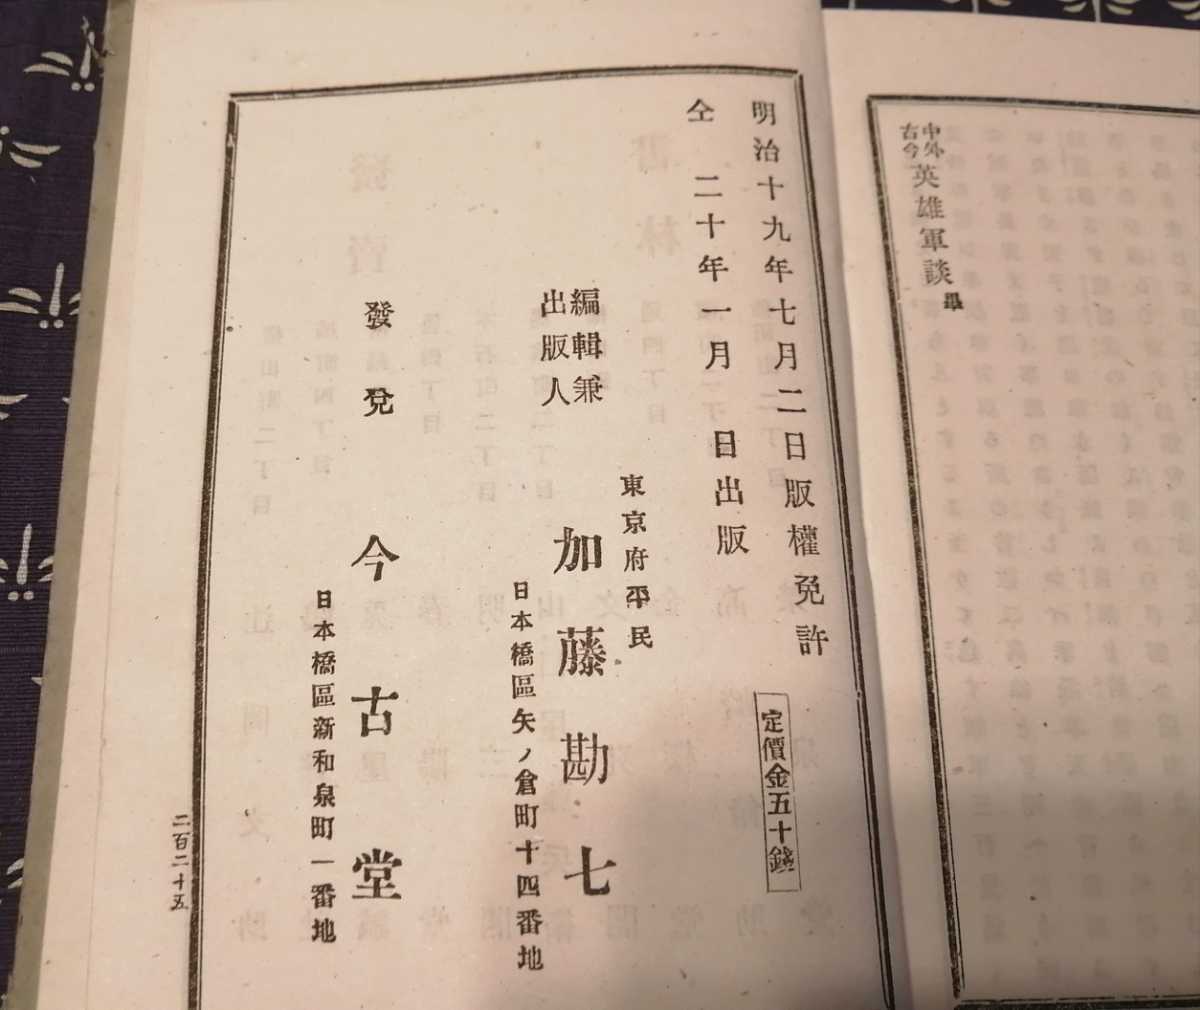 中外古今英雄軍談畢
明治十九年七月二日版權免許
仝二十年一月　日出版
定價金五十錢
東京府平民
編輯兼
出版人
加藤勘七
日本橋區矢ノ倉町十四番地
發兌
今古堂
日本橋區新和泉町一番地
二百二十五